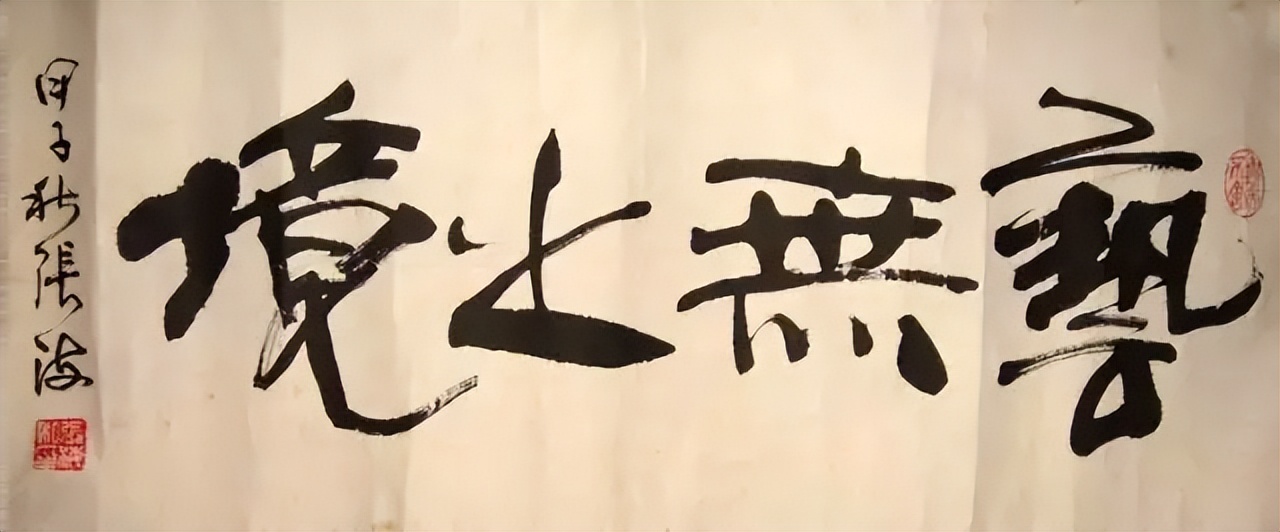 藝無止境
甲子秋張海